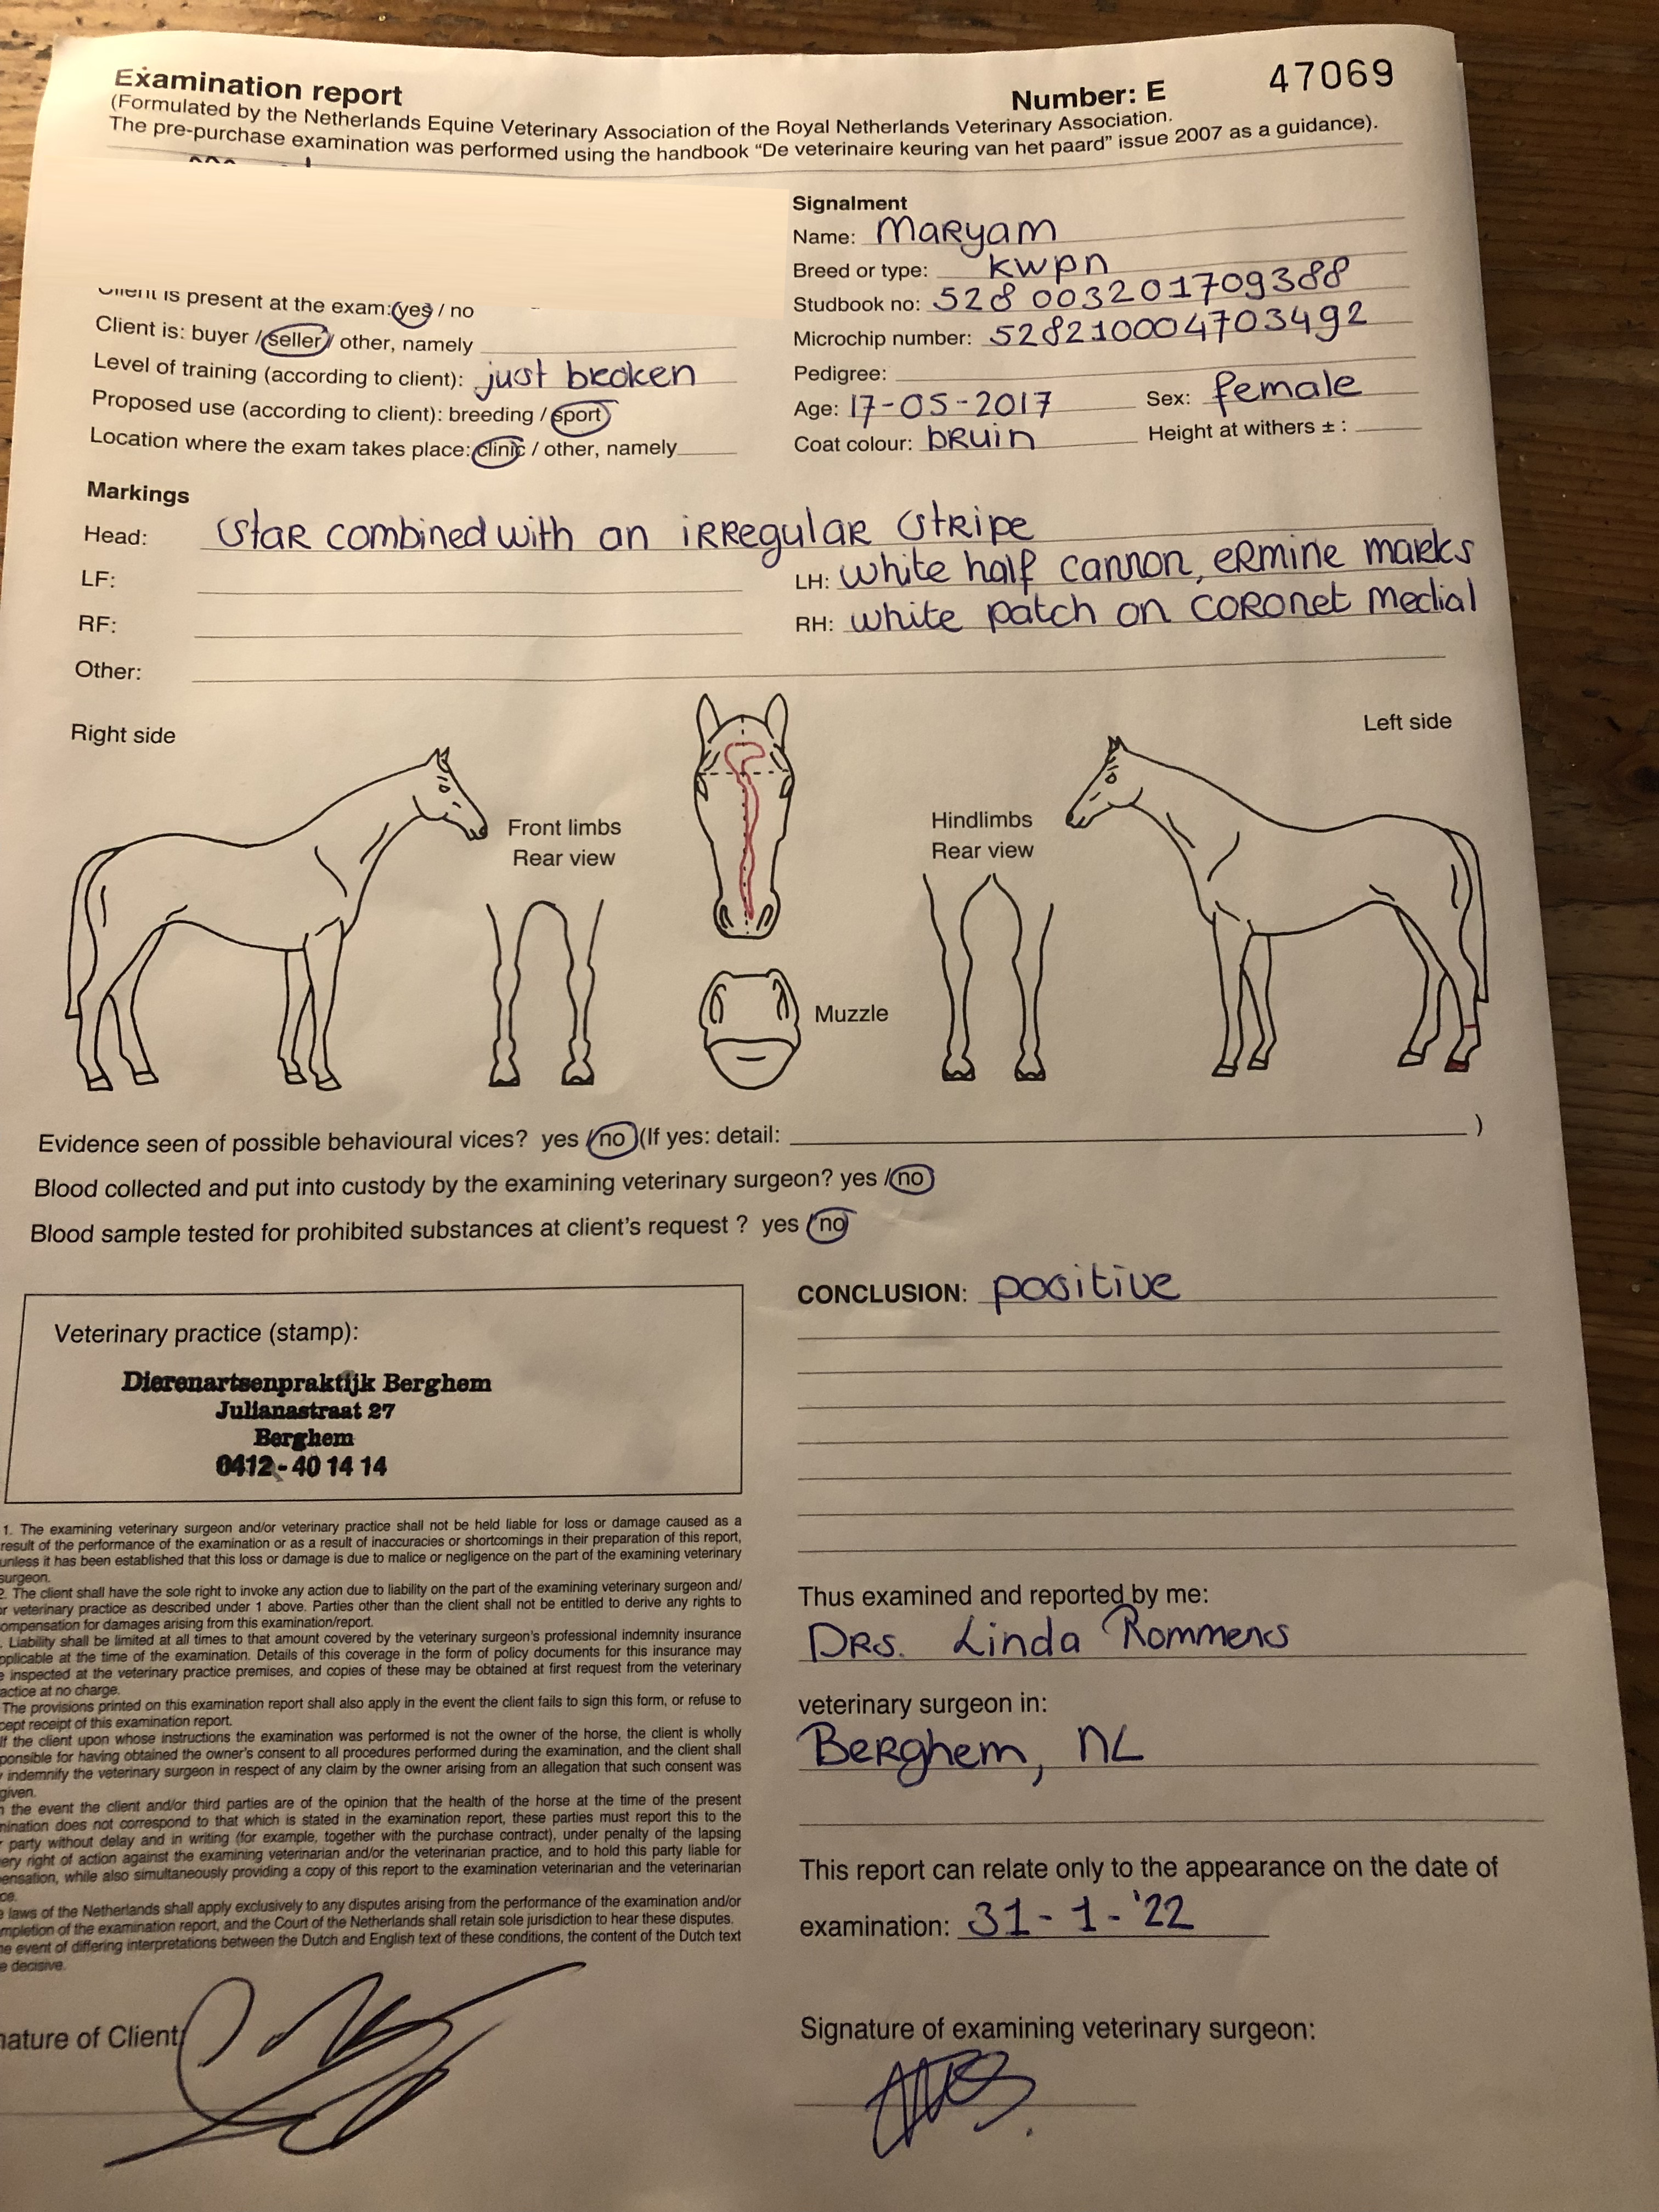 Examination report
Number: E 47069
(Formulated by the Netherlands Equine Veterinary Association of the Royal Netherlands Veterinary Association.
The pre-purchase examination was performed using the handbook “De veterinaire keuring van het paard” issue 2007 as a guidance).
Client is present at the exam: yes / no
Client is: buyer / seller / other, namely
Level of training (according to client): just broken
Proposed use (according to client): breeding / sport
Location where the exam takes place: clinic / other, namely
Signalment
Name: Maryam
Breed or type: KWPN
Studbook no: 528 003201709388
Microchip number: 528210004703492
Pedigree:
Age: 17-05-2017 Sex: female
Coat colour: bruin Height at withers ± :
Markings
Head: Star combined with an irregular stripe
LF: LH: white half cannon, ermine marks
RF: RH: white patch on coronet medial
Other:
Right side
Left side
Front limbs
Rear view
Hindlimbs
Rear view
Muzzle
Evidence seen of possible behavioural vices? yes / no (If yes: detail: )
Blood collected and put into custody by the examining veterinary surgeon? yes / no
Blood sample tested for prohibited substances at client's request ? yes / no
Veterinary practice (stamp):
Dierenartsenpraktijk Berghem
Julianastraat 27
Berghem
0412 - 40 14 14
CONCLUSION: positive
1. The examining veterinary surgeon and/or veterinary practice shall not be held liable for loss or damage caused as a
result of the performance of the examination or as a result of inaccuracies or shortcomings in their preparation of this report,
unless it has been established that this loss or damage is due to malice or negligence on the part of the examining veterinary
surgeon.
2. The client shall have the sole right to invoke any action due to liability on the part of the examining veterinary surgeon and/
or veterinary practice as described under 1 above. Parties other than the client shall not be entitled to derive any rights to
compensation for damages arising from this examination/report.
Liability shall be limited at all times to that amount covered by the veterinary surgeon's professional indemnity insurance
applicable at the time of the examination. Details of this coverage in the form of policy documents for this insurance may
be inspected at the veterinary practice premises, and copies of these may be obtained at first request from the veterinary
practice at no charge.
The provisions printed on this examination report shall also apply in the event the client fails to sign this form, or refuse to
accept receipt of this examination report.
If the client upon whose instructions the examination was performed is not the owner of the horse, the client is wholly
responsible for having obtained the owner's consent to all procedures performed during the examination, and the client shall
indemnify the veterinary surgeon in respect of any claim by the owner arising from an allegation that such consent was
given.
the event the client and/or third parties are of the opinion that the health of the horse at the time of the present
examination does not correspond to that which is stated in the examination report, these parties must report this to the
party without delay and in writing (for example, together with the purchase contract), under penalty of the lapsing
every right of action against the examining veterinarian and/or the veterinarian practice, and to hold this party liable for
compensation, while also simultaneously providing a copy of this report to the examination veterinarian and the veterinarian
laws of the Netherlands shall apply exclusively to any disputes arising from the performance of the examination and/or
completion of the examination report, and the Court of the Netherlands shall retain sole jurisdiction to hear these disputes.
event of differing interpretations between the Dutch and English text of these conditions, the content of the Dutch text
decisive.
Thus examined and reported by me:
DRS. Linda Rommens
veterinary surgeon in:
Berghem, NL
This report can relate only to the appearance on the date of
examination: 31-1-'22
nature of Client:
Signature of examining veterinary surgeon: